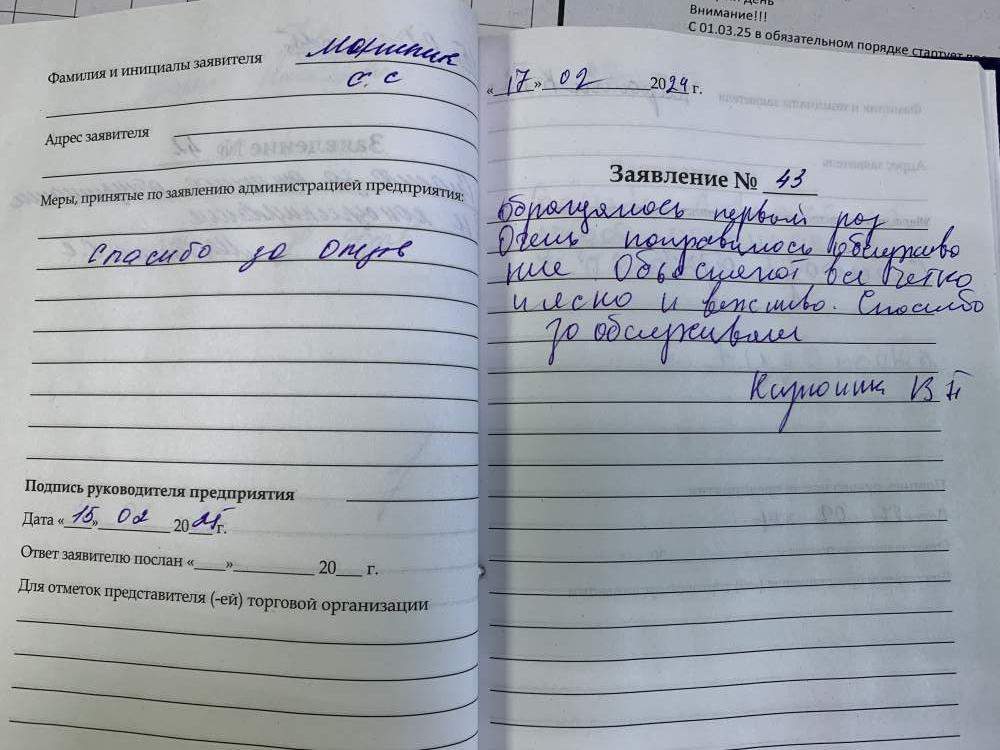 день
Внимание!!!
С 01.03.25 в обязательном порядке стартует
Фамилия и инициалы заявителя
С. С
Адрес заявителя
Меры, принятые по заявлению администрацией предприятия:
Спасибо за отзыв
Подпись руководителя предприятия
Дата «15» 02 2025 г.
Ответ заявителю послан «____»____________ 20___ г.
Для отметок представителя (-ей) торговой организации
«17» 02 2024 г.
Заявление № 43
Обращаюсь первый раз
Очень понравилось обслужива
ние Объясняют все четко
и ясно и вежливо. Спасибо
за обслуживание
В П